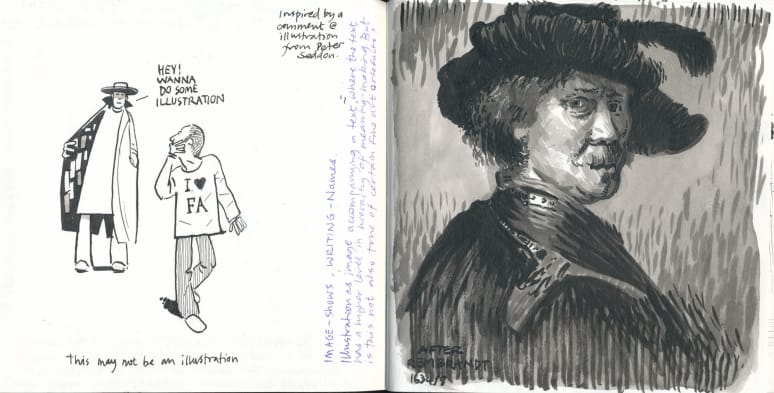 Inspired by a
comment @
illustration
from Peter
Seddon.
HEY!
WANNA
DO SOME
ILLUSTRATION
I ♥
FA
This may not be an illustration
IMAGE-shows, WRITING-Names.
Illustration as image accompanying a text, where the text
has a higher level in hierarchy of meaning-making. But
is this not also true of certain fine art artefacts?
AFTER
REMBRANDT